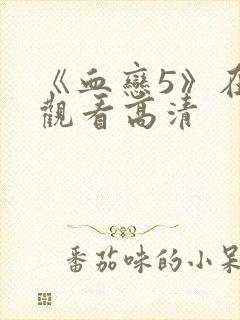 《血戀5》在
觀看高清
番茄味的小呆